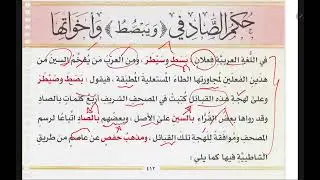 حكم الصاد في ﴿وَيَبْصُطُ﴾ وأخواتها
في اللغة العربية فعلان: بسط وسيطر، ومن العرب من يفخم السين من
هذين الفعلين لمجاورتها الطاء المستعلية المطبقة، فيقول: بصط وصيطر
وعلى لهجة هذه القبائل كتبت في المصحف الشريف أربع كلمات بالصاد
وقد رواها بعض القراء بالسين على الأصل، وبعضهم بالصاد اتباعًا لرسم
المصحف وموافقة للهجة تلك القبائل، ومذهب حفص عن عاصم من طريق
الشاطبية فيها كما يلي:
٤١٢